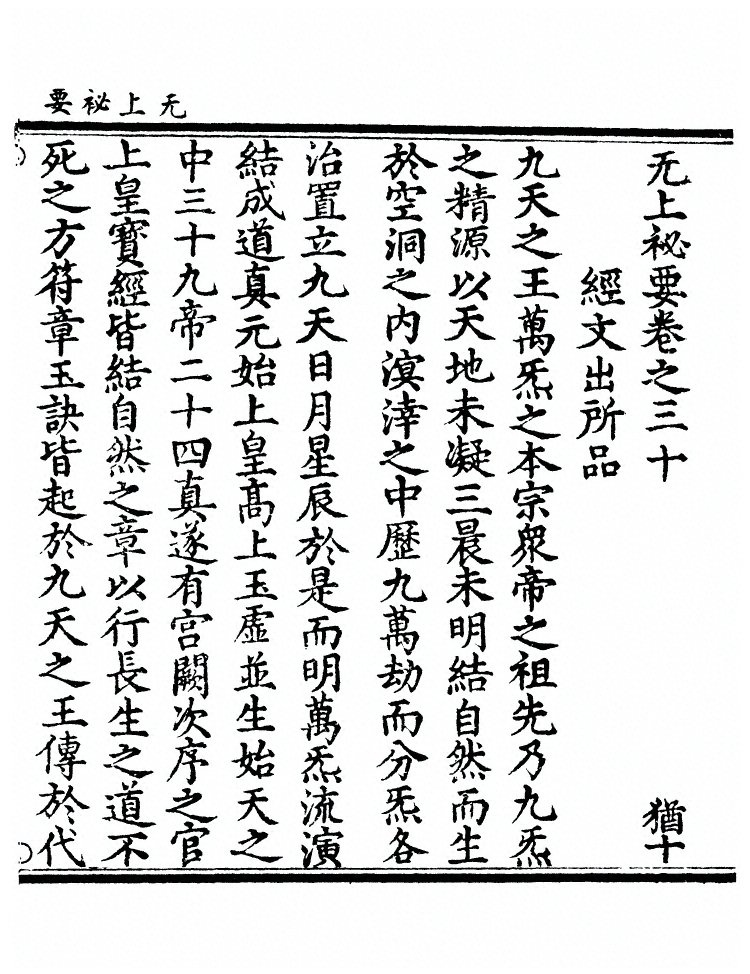 无上祕要
无上祕要卷之三十 猶十
經文出所品
九天之王萬炁之本宗衆帝之祖先乃九炁
之精源以天地未凝三晨未明結自然而生
於空洞之內溟涬之中歷九萬劫而分炁各
治置立九天日月星辰於是而明萬炁流演
結成道真元始上皇高上玉虛並生始天之
中三十九帝二十四真遂有宮闕次序之官
上皇寶經皆結自然之章以行長生之道不
死之方符章玉訣皆起於九天之王傳於代